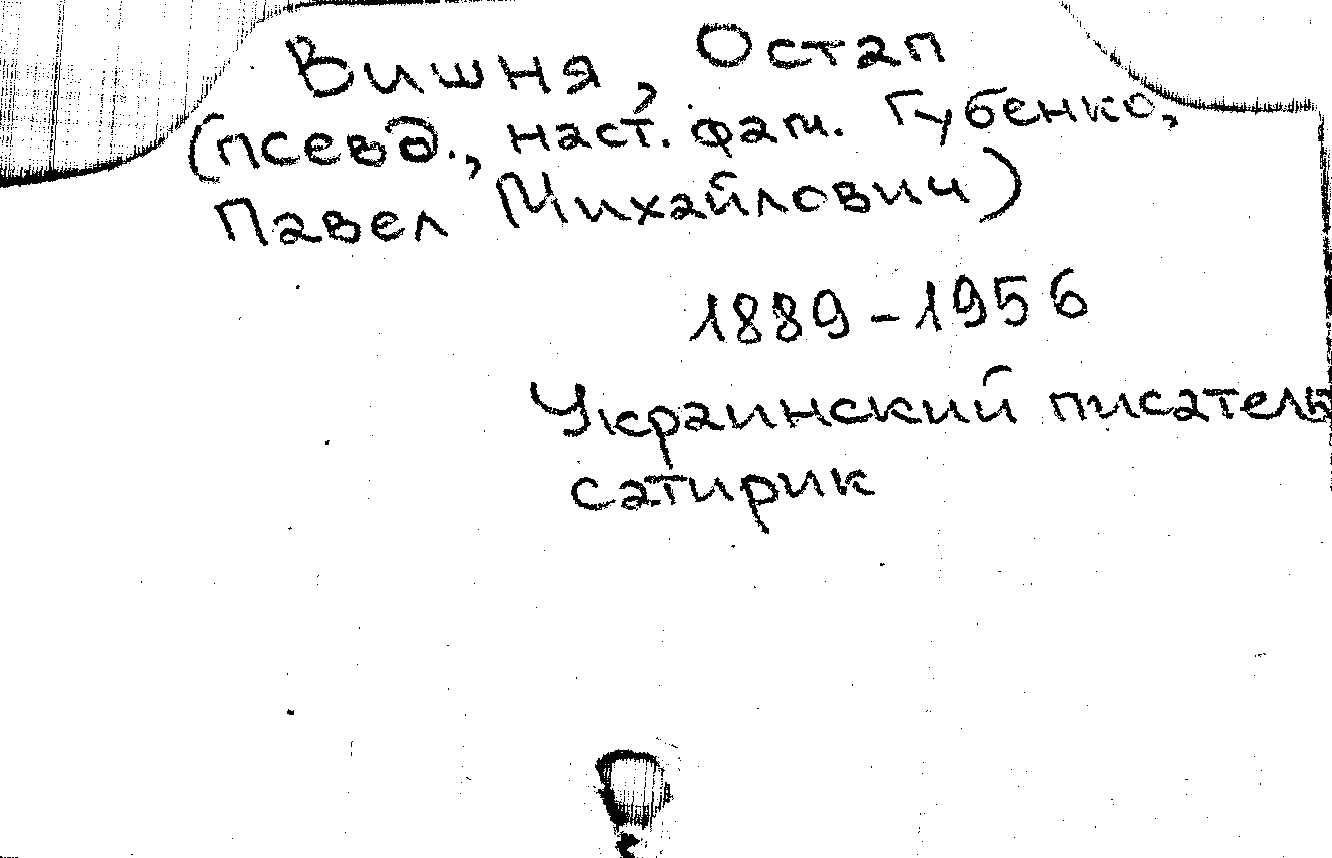 Вишня, Остап
(псевд., наст. фам. Губенко,
Павел Михайлович)
1889-1956
Украинский писатель
сатирик